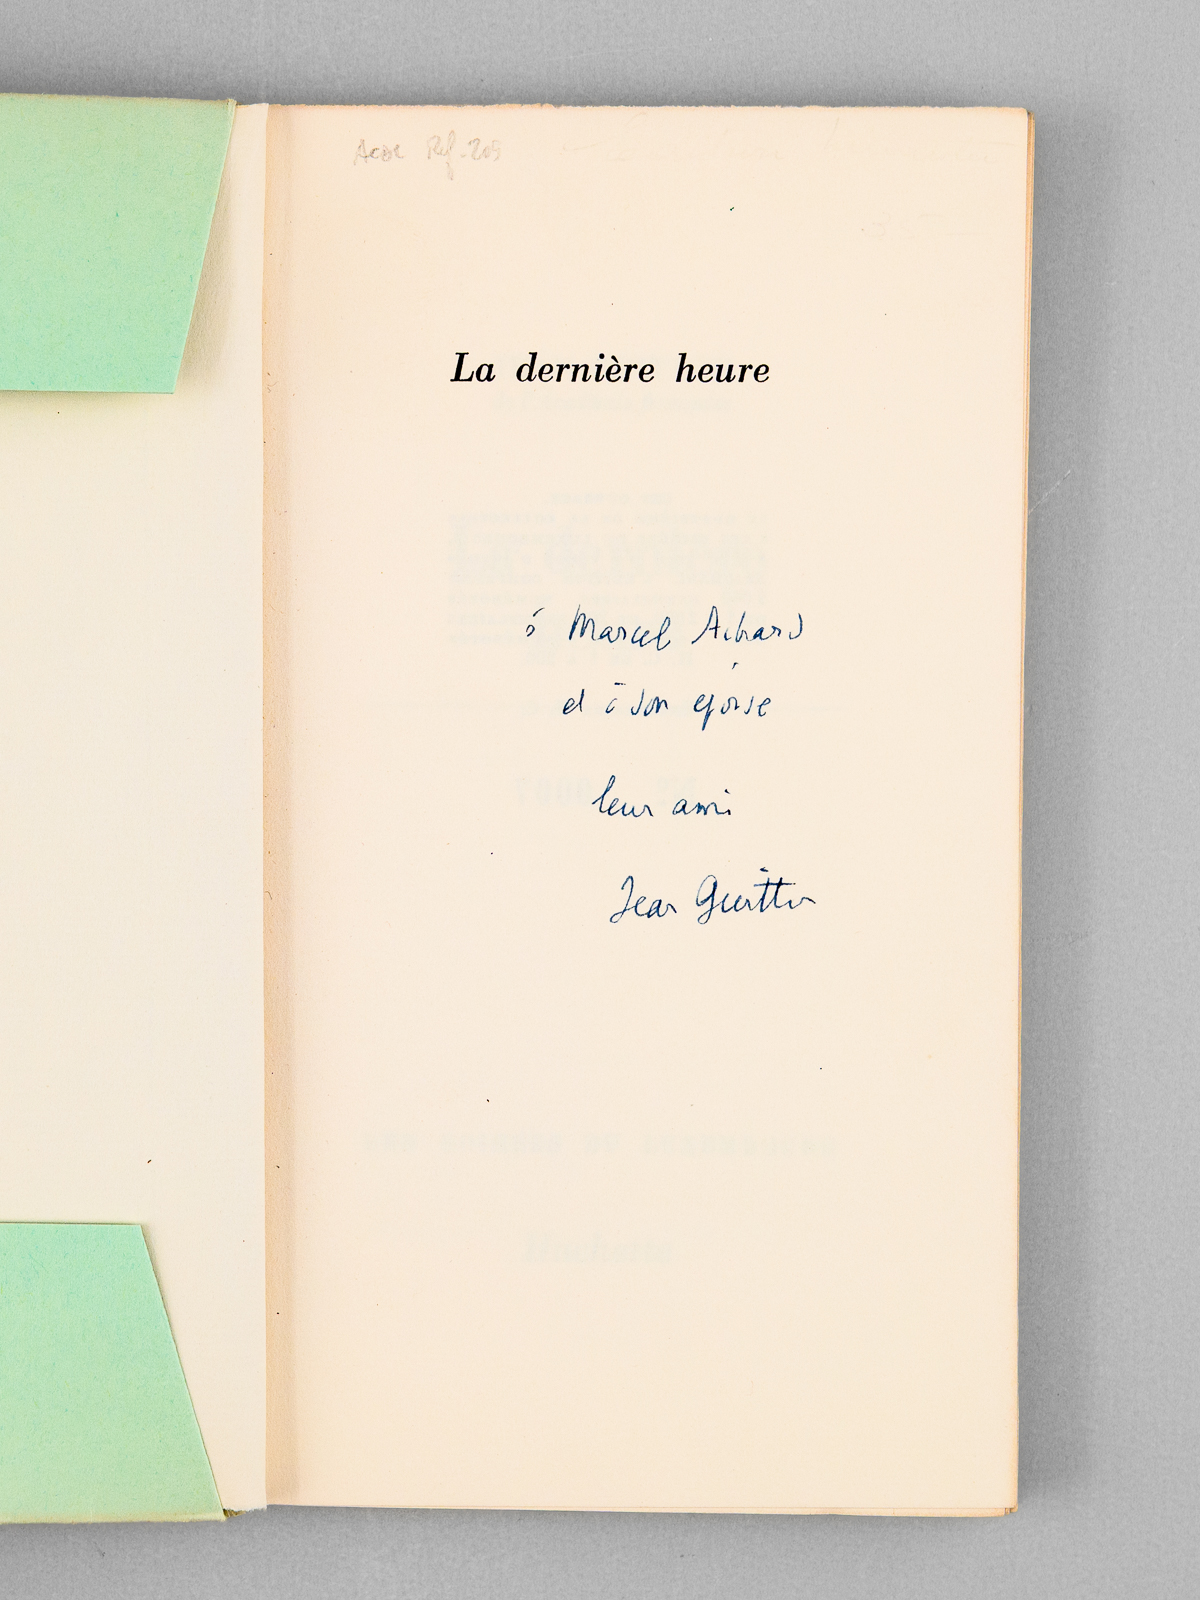 Réf. 209
La dernière heure
à Marcel Achard
et à son épouse
leur ami
Jean Guitton